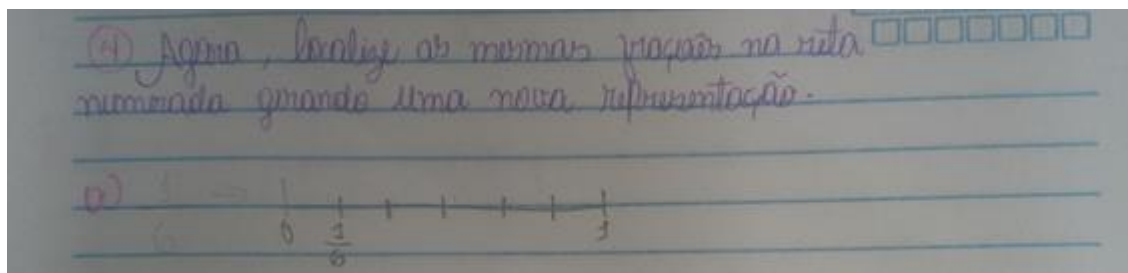 4 Agora, localize as mesmas frações na reta
numerada gerando uma nova representação.
a) 1 →
6
0 1 1
6